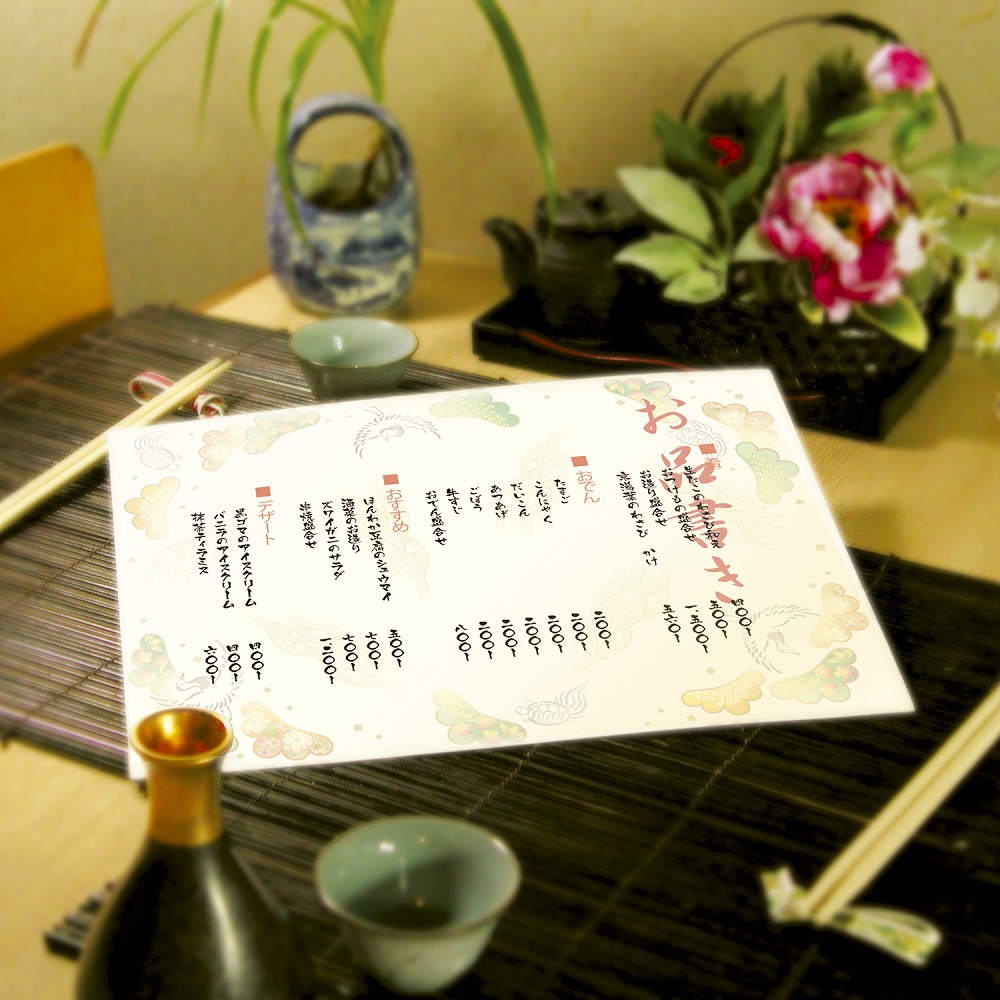 お品書き
■肴
生だこのわさび和え 四〇〇〜
おつけもの盛合せ 五〇〇〜
お造り盛合せ 一、五〇〇〜
京湯葉のわさび かけ 五六〇〜
■おでん
たまご 二〇〇〜
こんにゃく 二〇〇〜
だいこん 二〇〇〜
あつあげ 二〇〇〜
ごぼう 二〇〇〜
牛すじ 二〇〇〜
おでん盛合せ 八〇〇〜
■おすすめ
ほんわか豆腐のシュウマイ 五〇〇〜
湯葉のお造り 七〇〇〜
ズワイガニのサラダ 七〇〇〜
串焼盛合せ 一、二〇〇〜
■デザート
黒ゴマのアイスクリーム 四〇〇〜
バニラのアイスクリーム 四〇〇〜
抹茶ティラミス 六〇〇〜